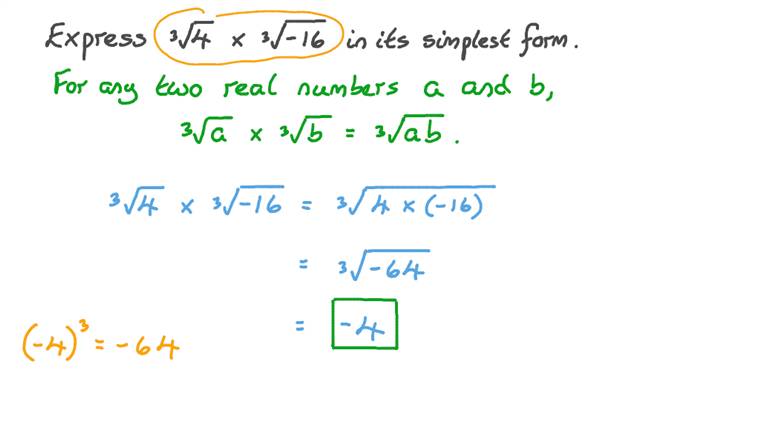 Express ³√4 × ³√-16 in its simplest form.
For any two real numbers a and b,
³√a × ³√b = ³√ab.
³√4 × ³√-16 = ³√4 × (-16)
= ³√-64
= -4
(-4)³ = -64